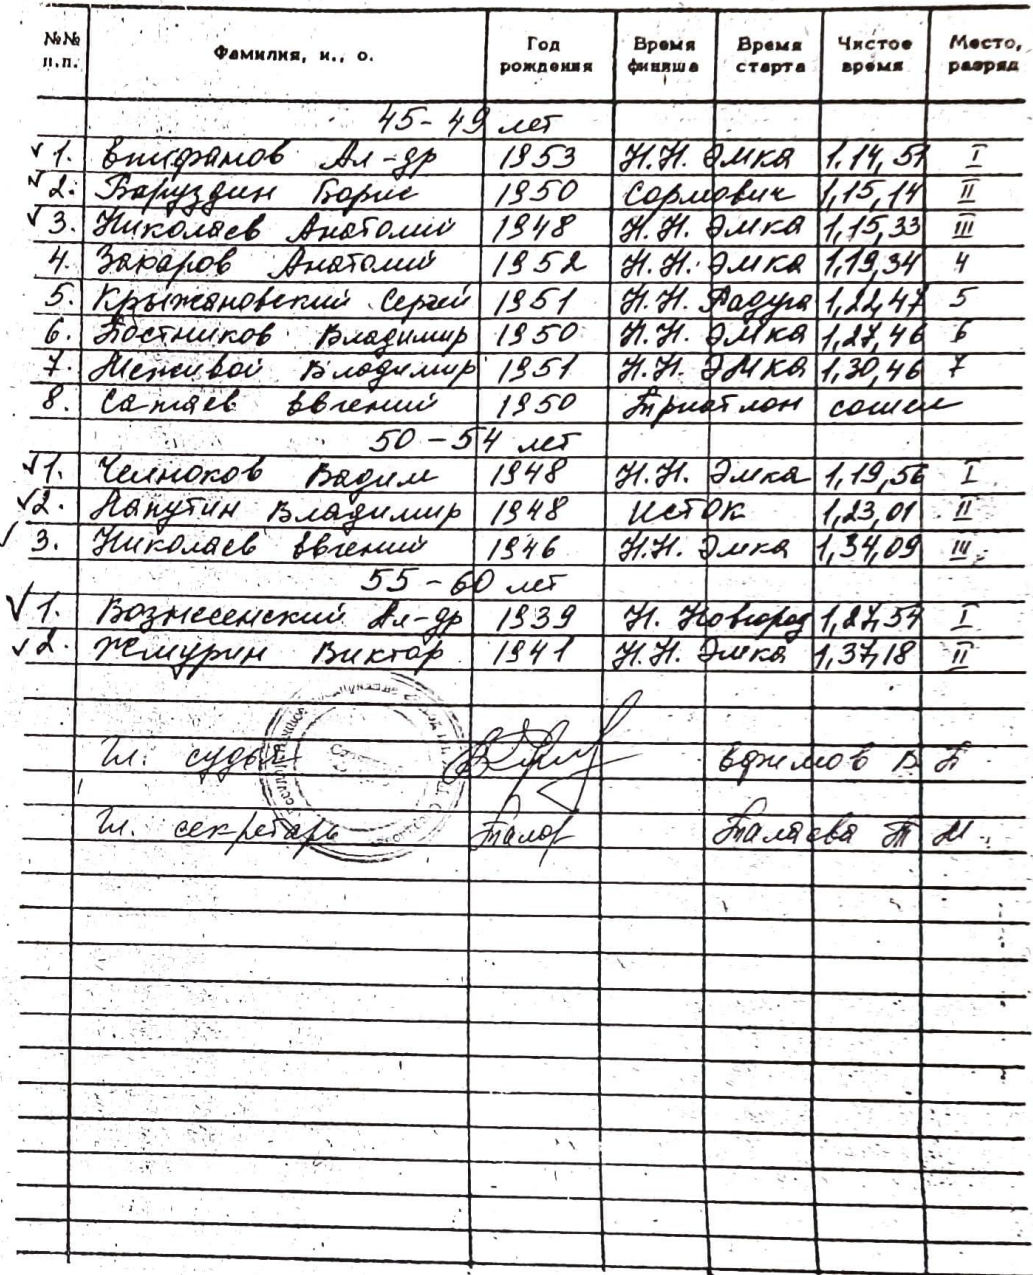 №№ п.п. Фамилия, и., о. Год рождения Время финиша Время старта Чистое время Место, разряд
45-49 лет
√ 1. Епифанов Ал-др 1953 Н.Н. Эмка 1,14,51 I
√ 2. Баруздин Борис 1950 Сормович 1,15,14 II
√ 3. Николаев Анатолий 1948 Н.Н. Эмка 1,15,33 III
4. Захаров Анатолий 1952 Н.Н. Эмка 1,19,34 4
5. Крыжановский Сергей 1951 Н.Н. Радуга 1,22,47 5
6. Постников Владимир 1950 Н.Н. Эмка 1,27,46 6
7. Меживой Владимир 1951 Н.Н. ЭМка 1,30,46 7
8. Евгений 1950 Триатлон сошел
50-54 лет
√ 1. Челноков Вадим 1948 Н.Н. Эмка 1,19,56 I
√ 2. Лапутин Владимир 1948 исток 1,23,01 II
√ 3. Николаев Евгений 1946 Н.Н. Эмка 1,34,09 III
55-60 лет
√ 1. Вознесенский Ал-др 1939 Н. Новгород 1,27,54 I
√ 2. Жемурин Виктор 1941 Н.Н. Эмка 1,37,18 II
Гл. судья Ефимов В П
Гл. секретарь Талаева Т М.